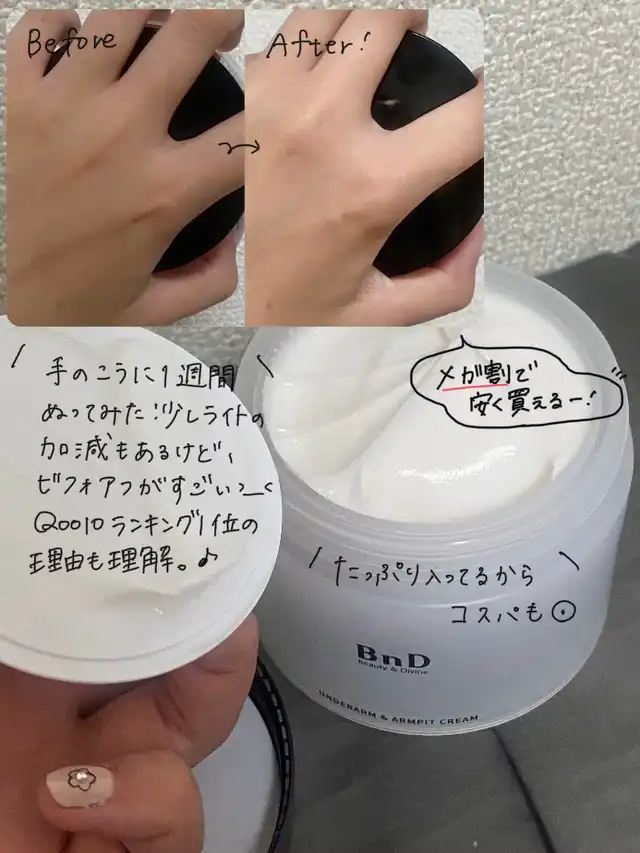 Before
After!
手のこうに1週間
ぬってみた!少しライトの
加減もあるけど、
ビフォアフがすごいっ
Qoo10ランキング1位の
理由も理解。♪
メガ割で
安く買えるー!
たっぷり入ってるから
コスパも◎
BnD
Beauty & Divine
UNDERARM & ARMPIT CREAM